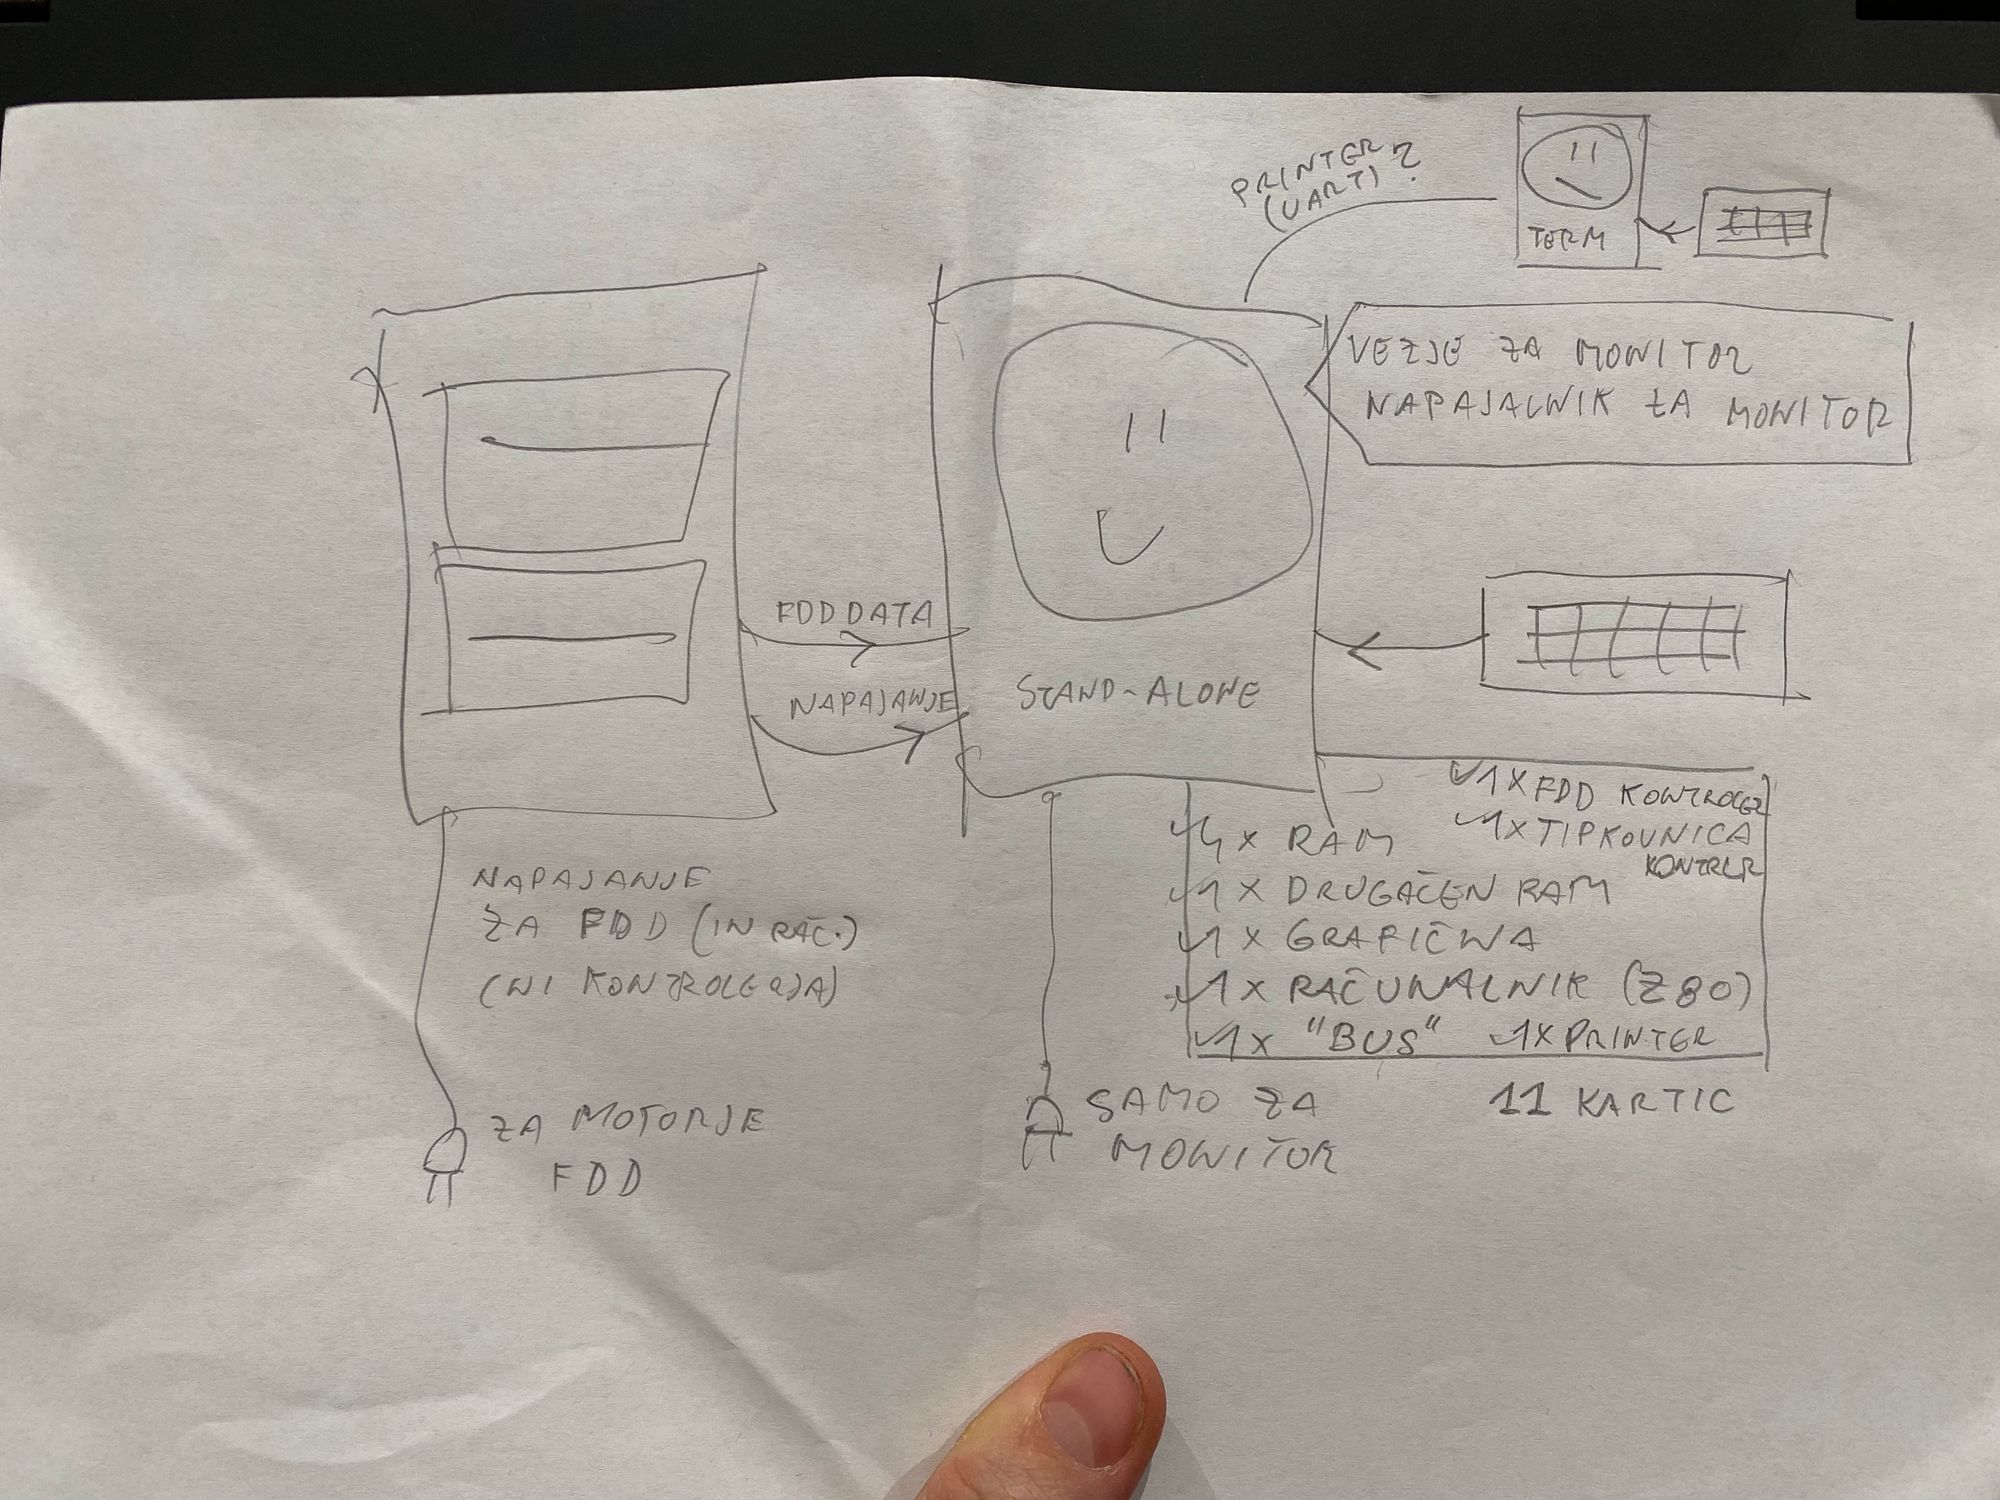 PRINTER
(UART)?
TERM
VEZJE ZA MONITOR
NAPAJALNIK ZA MONITOR
FDD DATA
NAPAJANJE
STAND-ALONE
1X FDD KONTROLER
1X TIPKOVNICA
KONTRLR
4X RAM
1X DRUGAČEN RAM
1X GRAFIČNA
1X RAČUNALNIK (Z80)
1X "BUS" 1X PRINTER
11 KARTIC
NAPAJANJE
ZA FDD (IN RAČ.)
(NI KONTROLERJA)
ZA MOTORJE
FDD
SAMO ZA
MONITOR